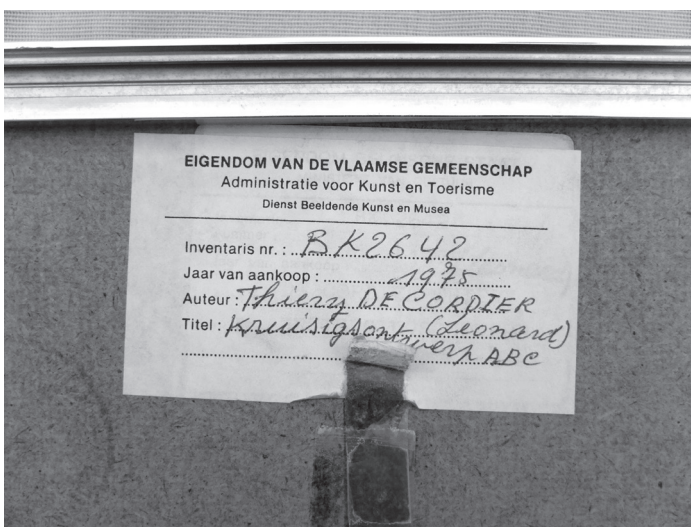 EIGENDOM VAN DE VLAAMSE GEMEENSCHAP
Administratie voor Kunst en Toerisme
Dienst Beeldende Kunst en Musea
Inventaris nr. : BK2642
Jaar van aankoop : 1975
Auteur : Thierry DE CORDIER
Titel : Kruisigsontwerp (Leonard)
ABC